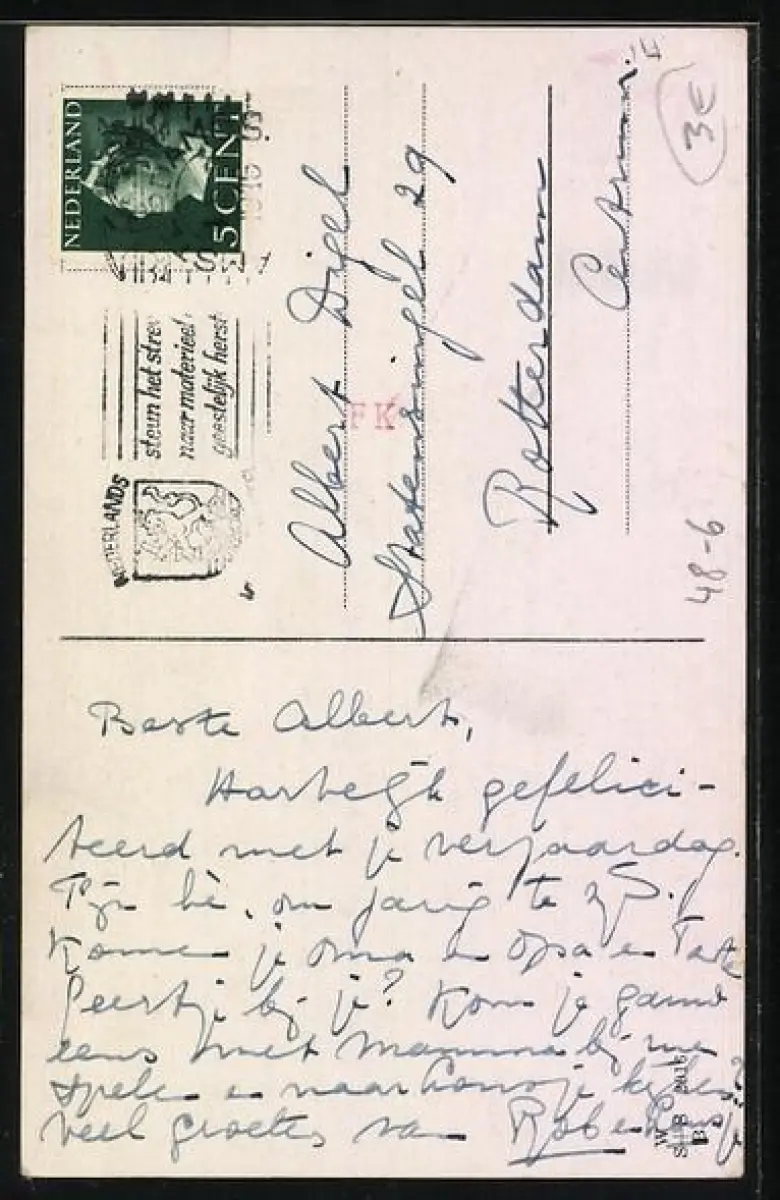 NEDERLAND
5 CENT
1948
steun het strev
naar materieel
geestelijk herst
NEDERLANDS
Albert Digel
Statensingel 29
Rotterdam
Centrum
FK
3E
48-6
Beste Albert,
Hartelijk gefelici-
teerd met je verjaardag.
Fijn hè, om jarig te zijn.
Komen je oma en opa en Tante
Geertje bij je? Kom je gauw
eens met mamma bij me
spelen en naar Hansje kijken?
veel groetes van Rob en Hansje